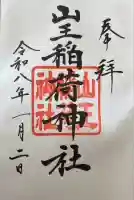 奉拝
山王稲荷神社
山王
神社
令和八年一月二日